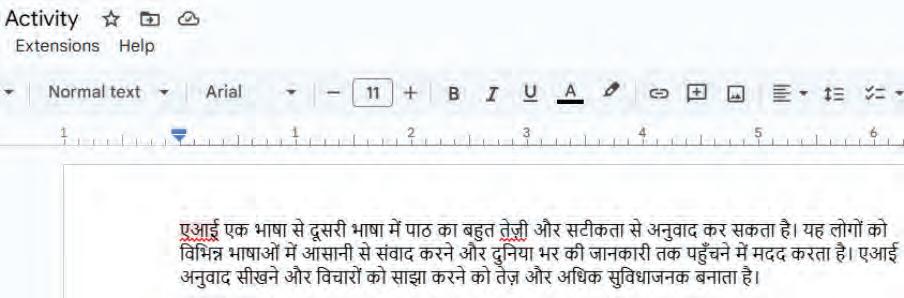 Activity
Extensions Help
Normal text Arial − 11 + B I U A
1 1 2 3 4 5 6
एआई एक भाषा से दूसरी भाषा में पाठ का बहुत तेज़ी और सटीकता से अनुवाद कर सकता है। यह लोगों को
विभिन्न भाषाओं में आसानी से संवाद करने और दुनिया भर की जानकारी तक पहुँचने में मदद करता है। एआई
अनुवाद सीखने और विचारों को साझा करने को तेज़ और अधिक सुविधाजनक बनाता है।